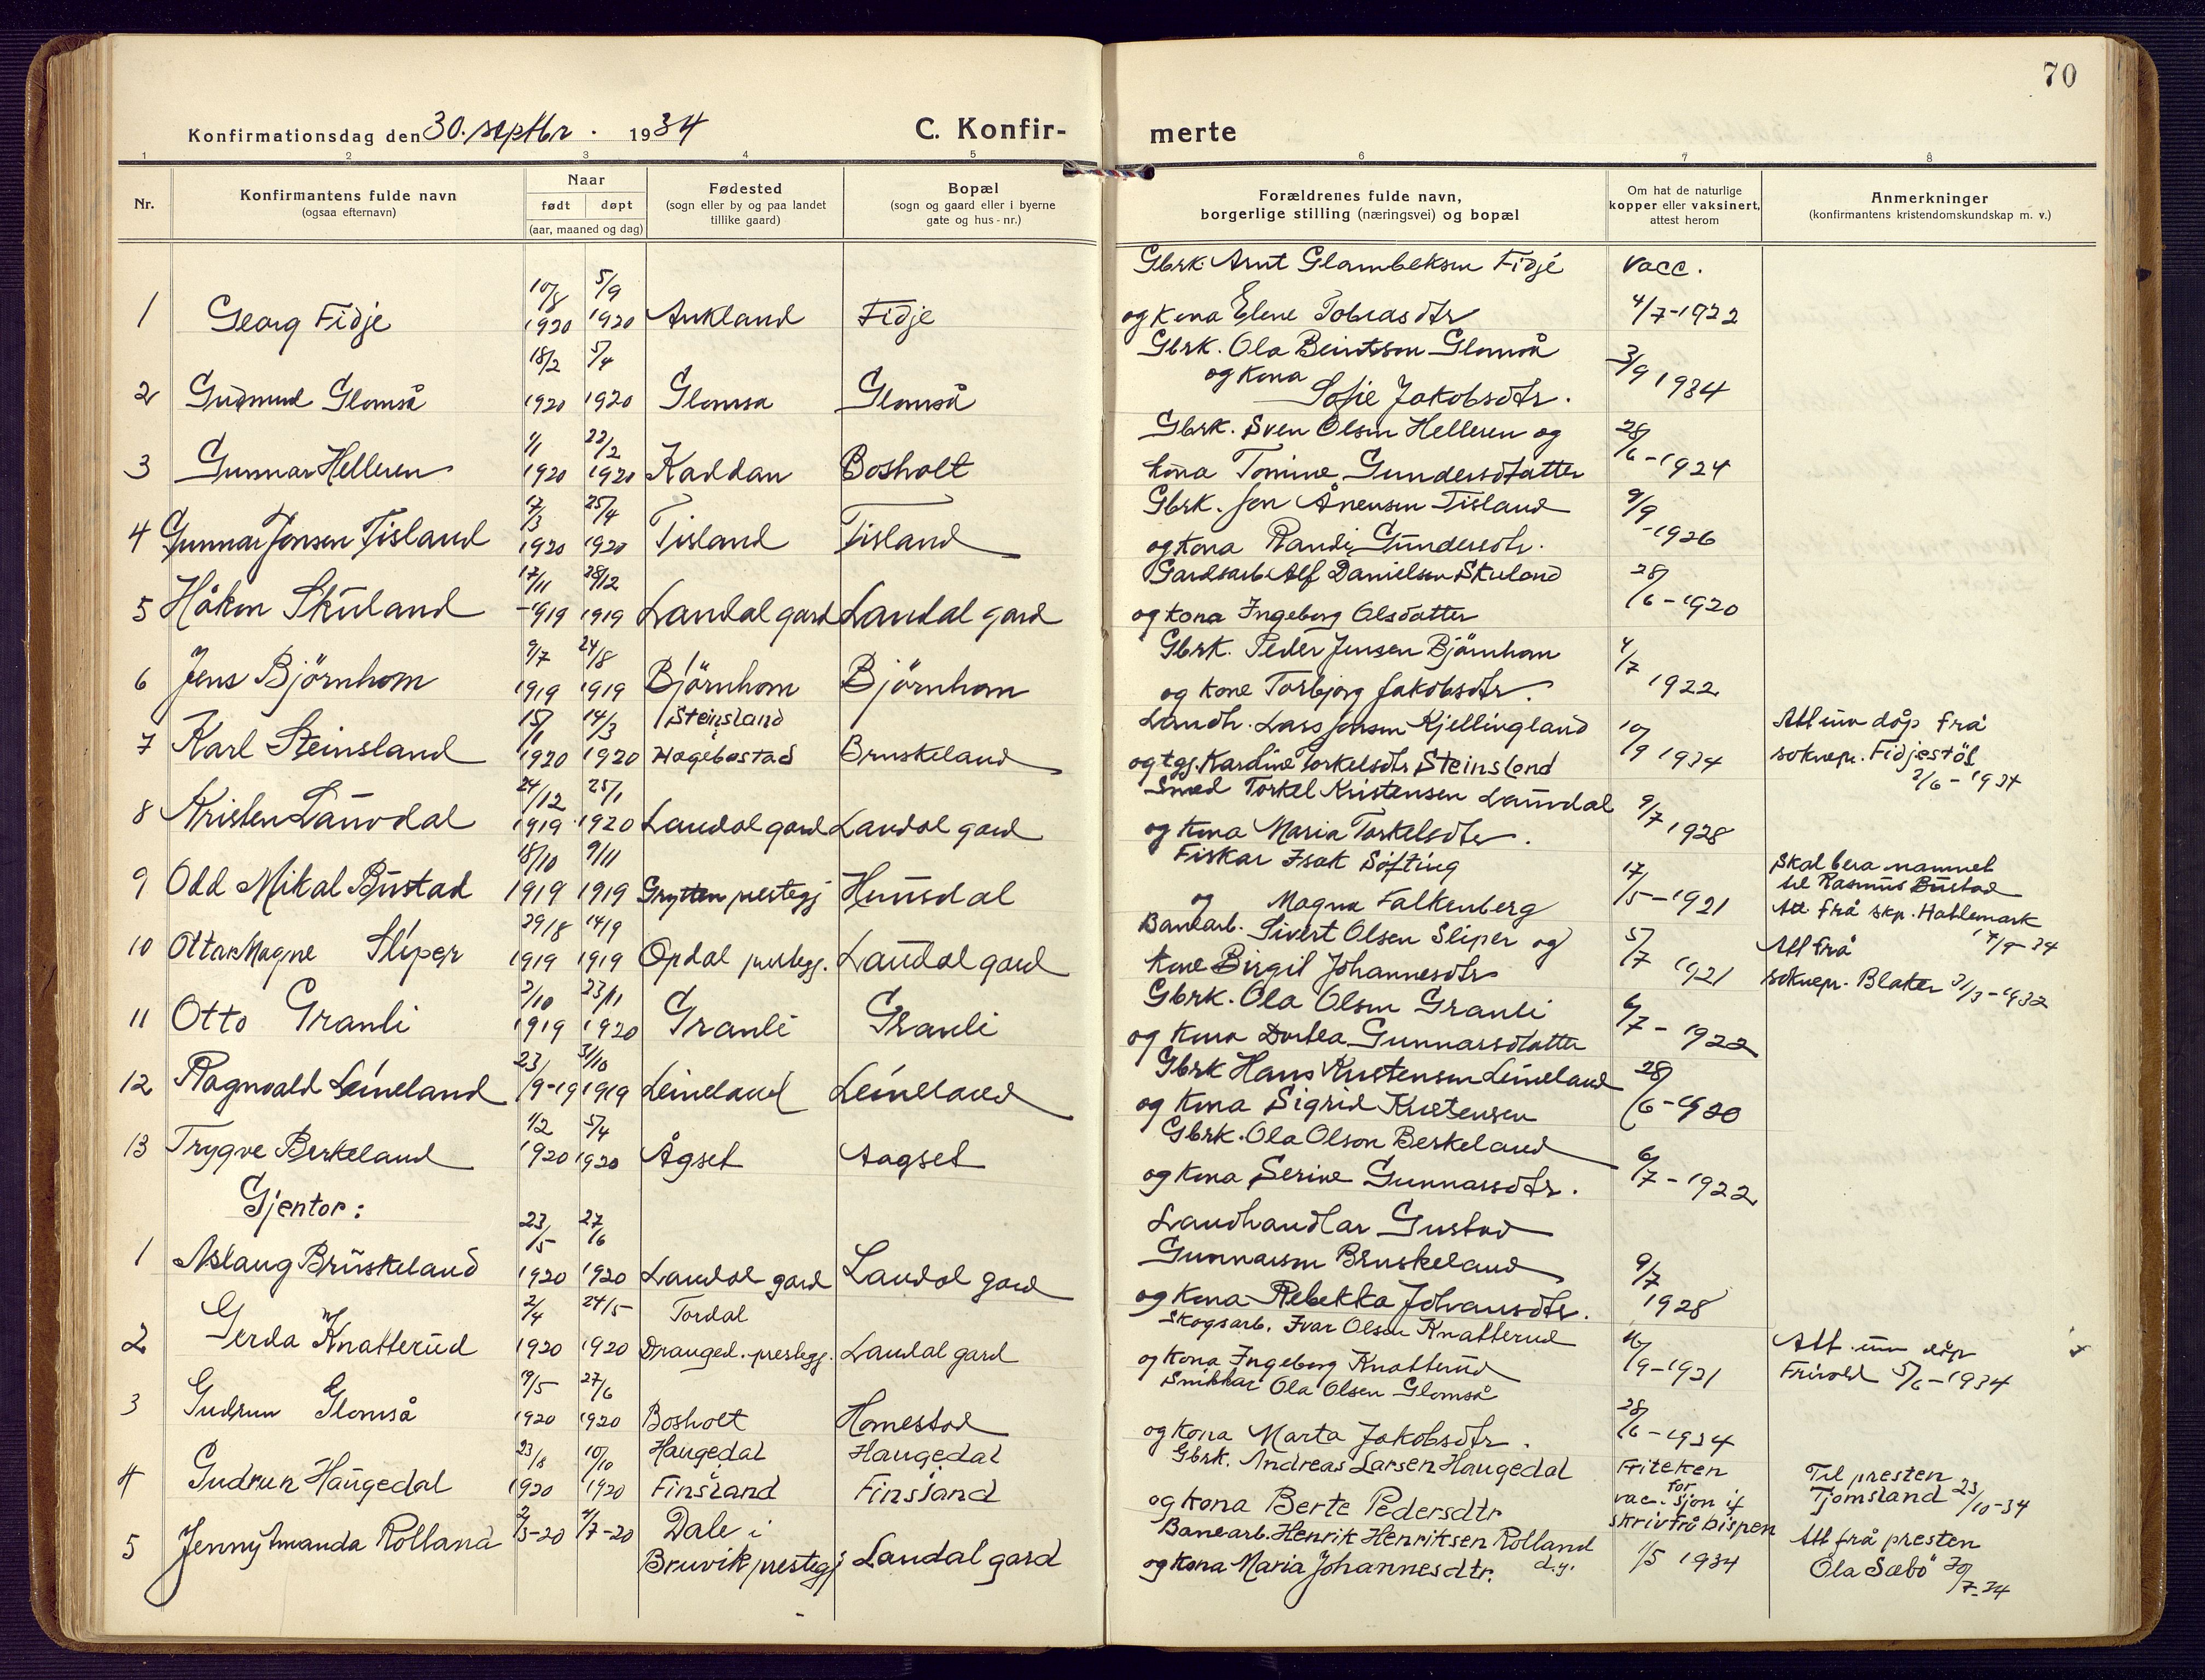 70
Konfirmationsdag den 30. septbr. 1934
C. Konfir-merte
1 2 3 4 5 6 7 8
Nr.
Konfirmantens fulde navn
(ogsaa efternavn)
Naar
født døpt
(aar, maaned og dag)
Fødested
(sogn eller by og paa landet
tillike gaard)
Bopæl
(sogn og gaard eller i byerne
gate og hus-nr.)
Forældrenes fulde navn,
borgerlige stilling (næringsvei) og bopæl
Om hat de naturlige
kopper eller vaksinert,
attest herom
Anmerkninger
(konfirmantens kristendomskundskap m. v.)
Gbrk. Arnt Glambeksen Fidje vacc.
10/8 5/9
1 Georg Fidje 1920 1920 Aukland Fidje og kona Elene Tobiasdtr 4/7-1922
18/2 5/4 Gbrk. Ola Berntsson Glomså 3/9 1934
2 Gudmund Glomså 1920 1920 Glomsa Glomså og kona Sofie Jakobsdtr.
1/1 22/2 Gbrk. Sven Olsen Helleren og 28/6-1924
3 Gunnar Helleren 1920 1920 Kaddan Bosholt kona Tomine Gundersdatter
17/3 25/4 Gbrk. Jon Ånensen Tisland 9/9-1926
4 Gunnar Jonsen Tisland 1920 1920 Tisland Tisland og kona Randi Gundersdtr.
17/11 28/12 Gardsarb. Alf Danielsen Skuland 28/6-1920
5 Håkon Skuland -1919 1919 Laudal gard Laudal gard og kona Ingeborg Olsdatter
9/7 24/8 Gbrk. Peder Jensen Björnhom 4/7 1922
6 Jens Björnhom 1919 1919 Björnhom Björnhom og kone Torbjørg Jakobsdtr.
15/1 14/3 Steinsland Landh. Lars Jonsen Kjellingland 10/9 1934 Att um dåp frå
7 Karl Steinsland 1920 1920 Hægebostad Bruskeland og tgj. Kardine Torkelsdtr Steinsland soknepr. Fidjestöl
2/6-1934
24/12 25/1 Smed Torkel Kristensen Lauvdal 9/7 1928
8 Kristen Lauvdal 1919 1920 Laudal gard Laudal gard og kona Maria Torkelsdtr.
18/10 9/11 Fiskar Isak Söfting 17/5-1921 Skal bera namnet
9 Odd Mikal Bustad 1919 1919 Grytten prestegj Huusdal og Magna Falkenberg til Rasmus Bustad
Att frå skp. Hallemark 17/9-34
29/8 14/9 Banearb. Sivert Olsen Sliper og 5/7 1921 Att frå
10 Ottar Magne Sliper 1919 1919 Opdal prestegj. Laudal gard kone Birgit Johannesdtr soknepr. Blaker 31/3-1932
2/10 23/11 Gbrk. Ola Olsen Granli 6/7-1922
11 Otto Granli 1919 1920 Granli Granli og kona Dortea Gunnarsdatter
23 31/10 Gbrk Hans Kristensen Leineland 28/6-1920
12 Ragnvald Leineland /9-19 1919 Leineland Leineland og kona Sigrid Kristensen
1/2 5/4 Gbrk. Ola Olson Berkeland 6/7-1922
13 Trygve Berkeland 1920 1920 Ågset Aagset og kona Serine Gunnarsdtr.
Gjentor:
23/5 27/6 Landhandlar Gustav
1 Aslaug Bruskeland 1920 1920 Laudal gard Laudal gard Gunnarson Bruskeland 9/7 1928
og kona Rebekka Johansdtr.
2/4 24/5 Tordal Skogsarb. Ivar Olsen Knatterud 16/9-1921 Att. um dåp
2 Gerda Knatterud 1920 1920 Dranged. prestegj. Laudal gard og kona Ingeborg Knatterud Frivold 5/6-1934
19/5 27/6 Snikkar Ola Olsen Glomså 28/6-1934
3 Gudrun Glomså 1920 1920 Bosholt Homestad og kona Marta Jakobsdtr.
23/8 10/10 Haugedal Haugedal Gbrk. Andreas Larsen Haugedal Friteken Til presten
4 Gudrun Haugedal 1920 1920 Finsland Finsland og kona Berte Pedersdtr for vac.sjon if skriv frå bispen Tjomsland 23/10-34
5 Jenny Amanda Rolland /3-20 /7-20 Dale i Bruvik prestegj Laudal gard Banearb. Henrik Henriksen Rolland
og kona Maria Johannesdtr. d.y. 1/5 1934 Att frå presten
Ola Sæbö 30/7-34